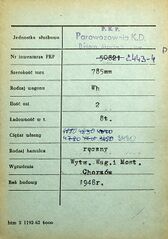 P. K. P.
Jednostka służbowa Parowozownia K.D.
Nr inwentarza PKP 50821 2443-4
Szerokość toru 785mm
Rodzaj wagonu Wh
Ilość osi 2
Ładowność w t. 8t.
Ciężar własny
Rodzaj hamulca ręczny
Wytwórnia Wytw. Wag. i Most.
Chorzów
Rok budowy 1948r.